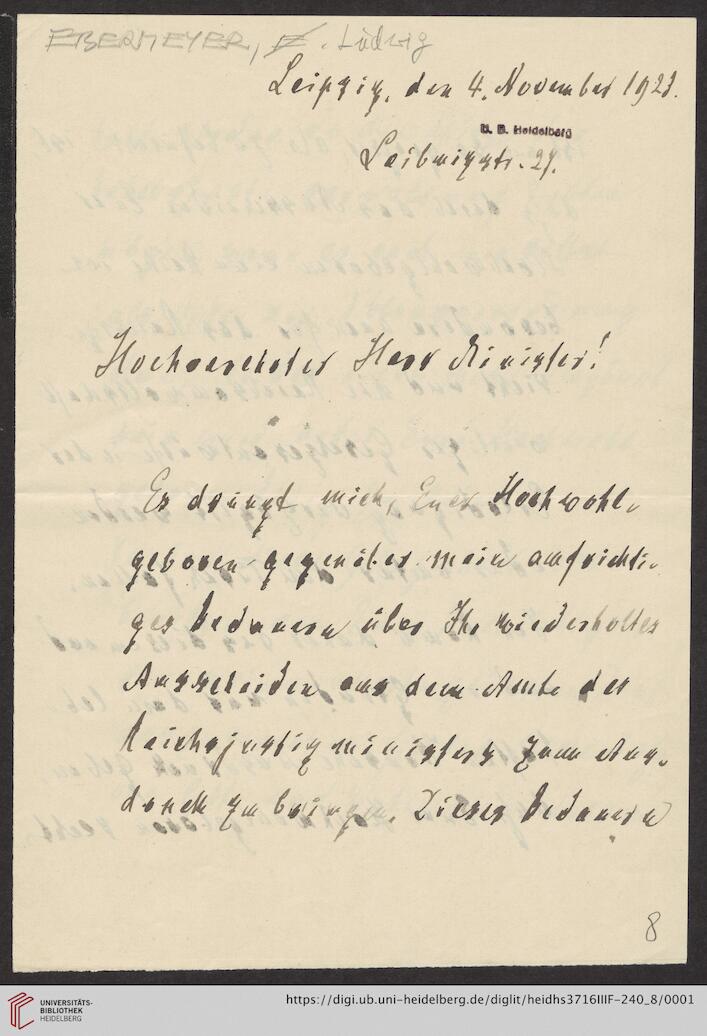 EBERMEYER, E. Ludwig
Leipzig, den 4. November 1923.
U. B. Heidelberg
Leibnizstr. 27.
Hochverehrter Herr Minister!
Es drängt mich, Euer Hochwohl-
geboren gegenüber mein aufrichti-
ges Bedauern über Ihr wiederholtes
Ausscheiden aus dem Amte des
Reichsjustizministers zum Aus-
druck zu bringen. Dieses Bedauern
8
UNIVERSITÄTS-
BIBLIOTHEK
HEIDELBERG
https://digi.ub.uni-heidelberg.de/diglit/heidhs3716IIIF-240_8/0001